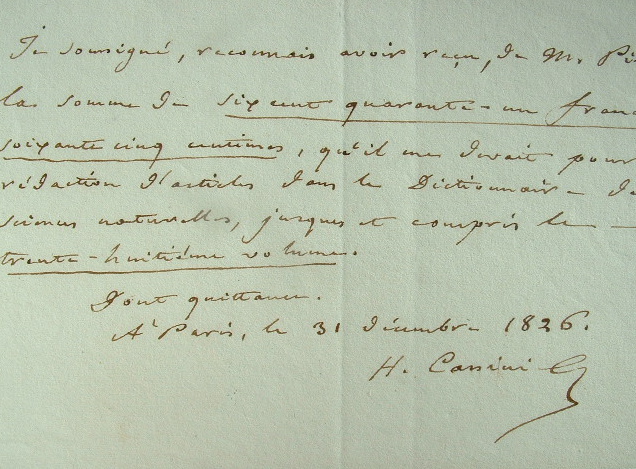 Je soussigné, reconnais avoir reçu, de M. Pi
la somme de six cent quarante-un franc
soixante cinq centimes, qu'il me devait pour
rédaction d'articles dans le Dictionnaire de
sciences naturelles, jusques et compris le
trente-huitième volume.
Dont quittance.
A Paris, le 31 décembre 1826.
H. Cassini